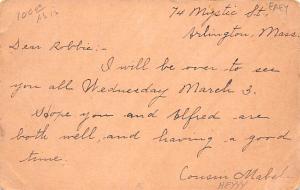 74 Mystic St.,
Arlington, Mass.
Dear Robbie:-
I will be over to see
you all Wednesday March 3.
Hope you and Elfred are
both well, and having a good
time.
Cousin Mabel
HEYYY